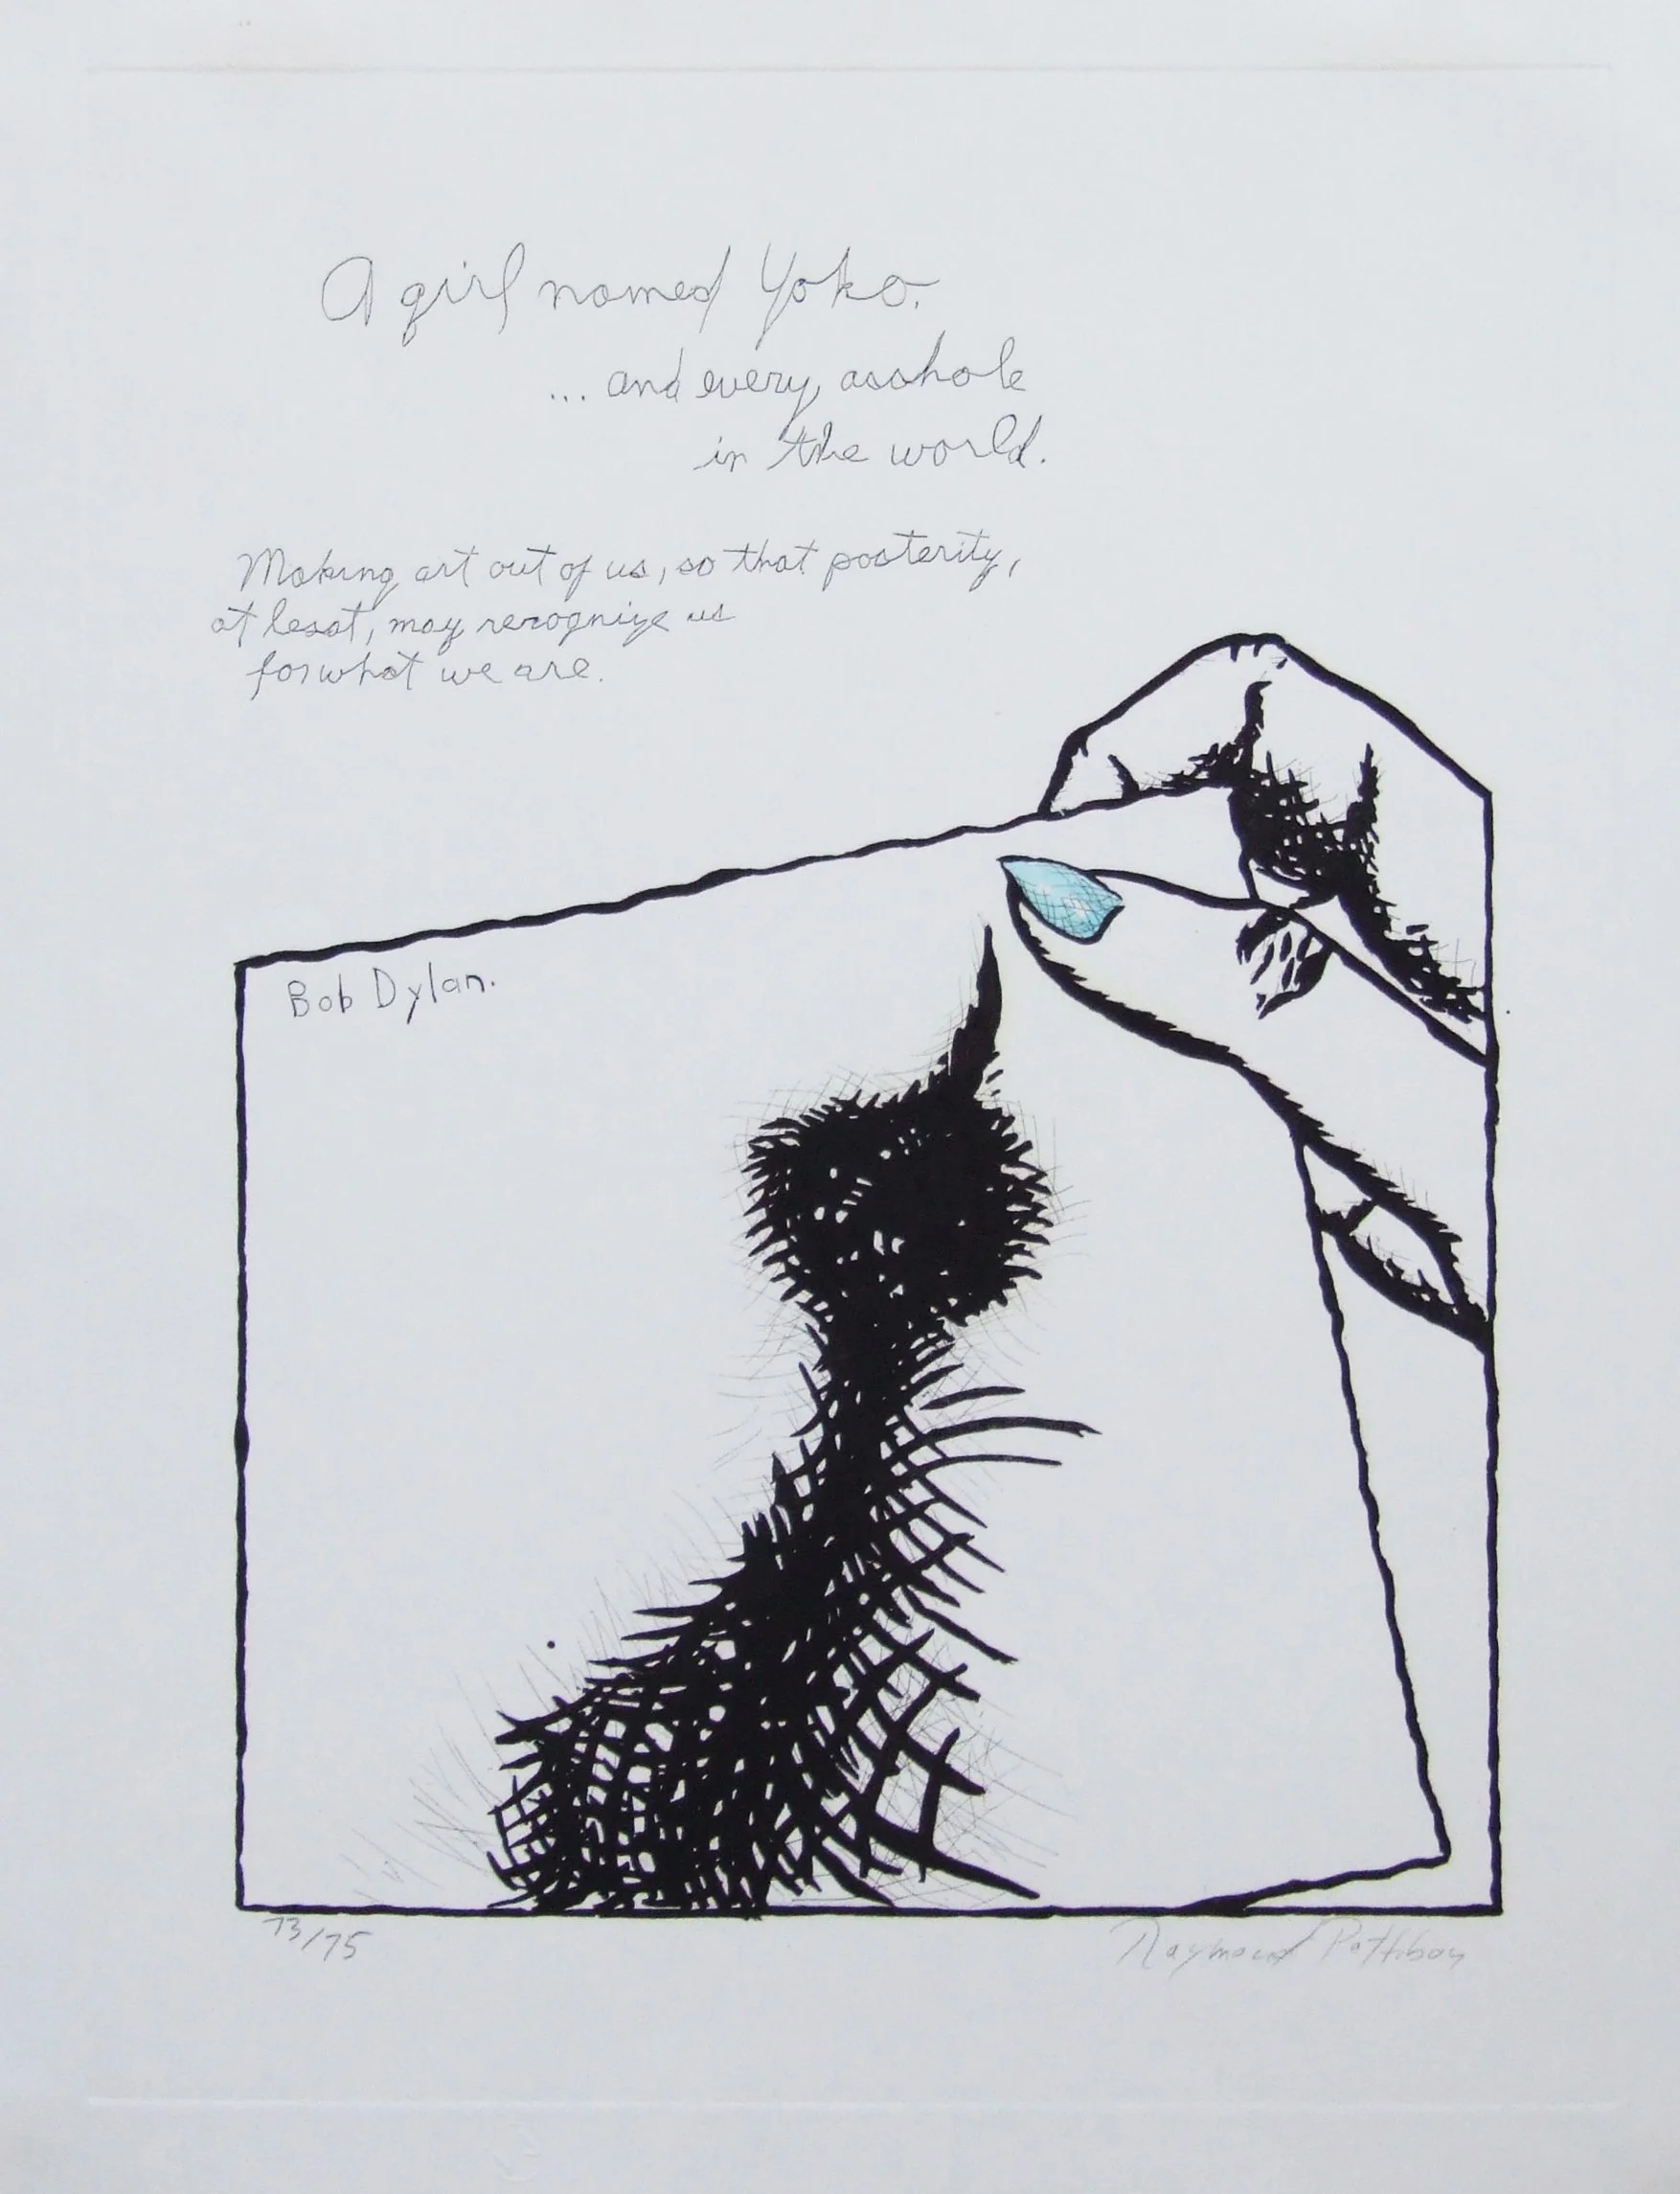 A girl named Yoko.
... and every asshole
in the world.
Making art out of us, so that posterity,
at least, may recognize us
for what we are.
Bob Dylan.
73/75
Raymond Pettibon